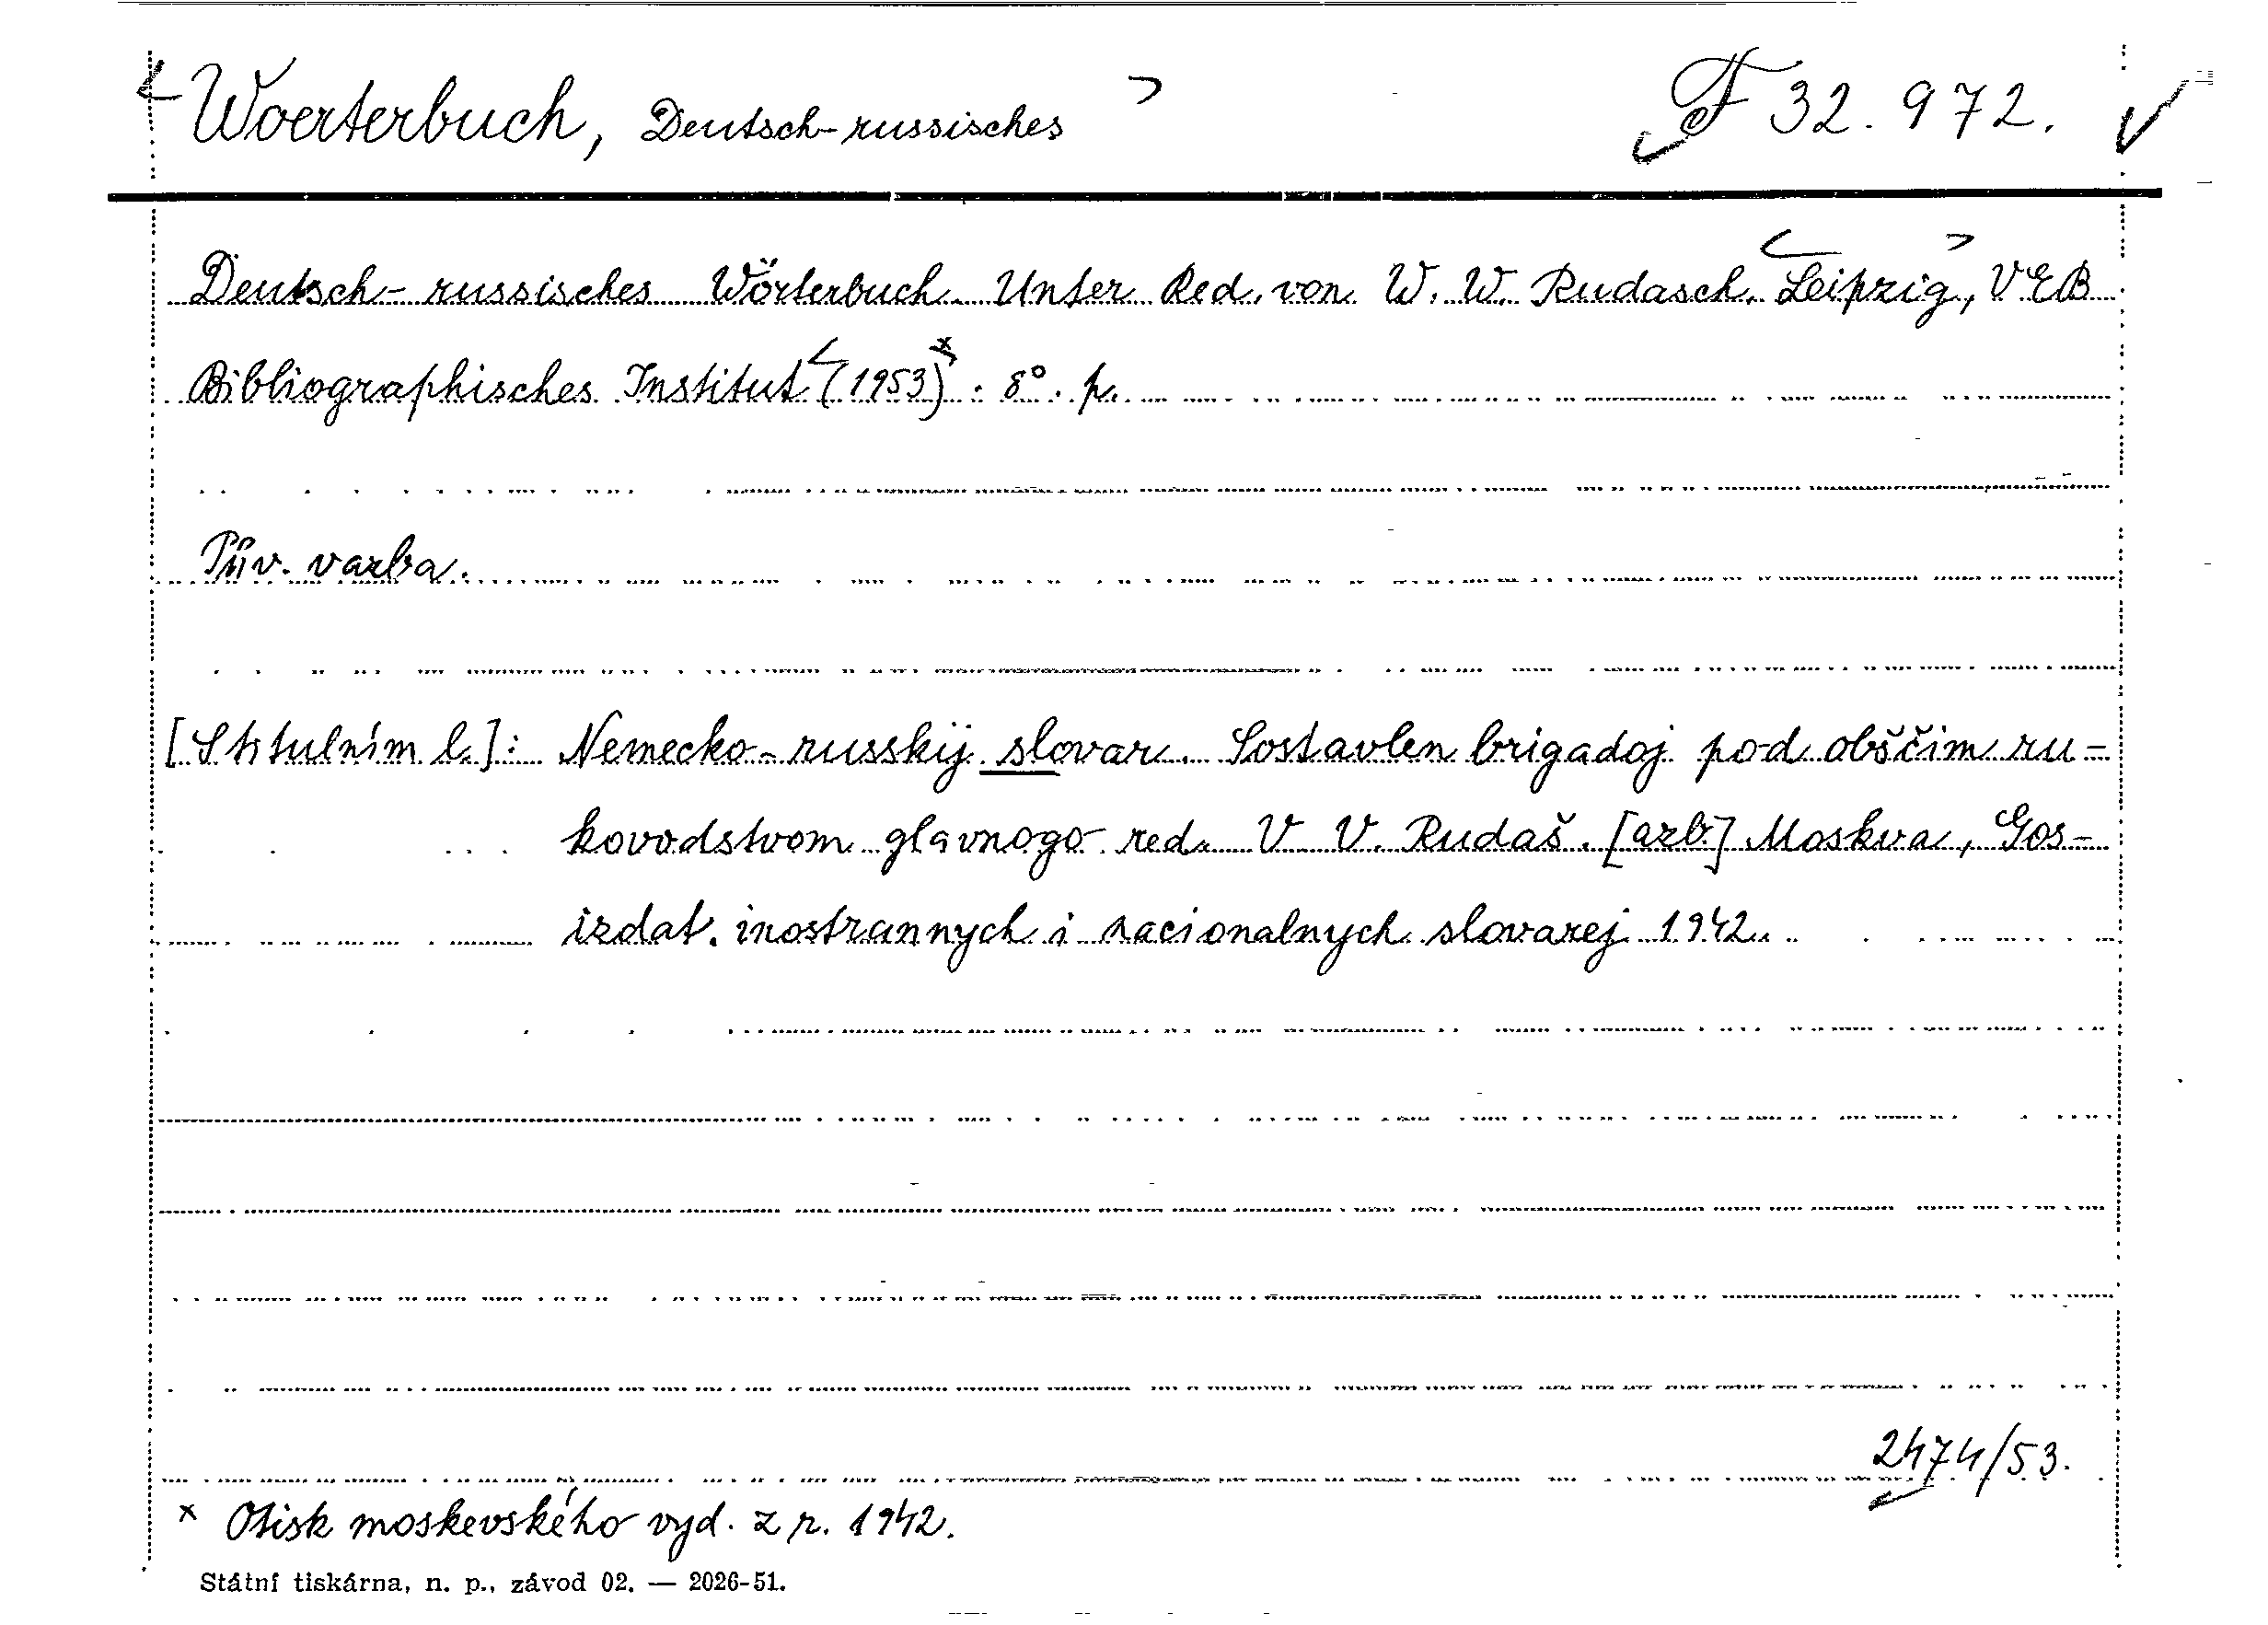 Woerterbuch, Deutsch-russisches F 32.972.
Deutsch-russisches Wörterbuch. Unter Red. von W. W. Rudasch. Leipzig, VEB
Bibliographisches Institut (1953)x. 8°. p.
Pův. vazba.
[S titulním l.]: Nemecko-russkij slovar. Sostavlen brigadoj pod obščim ru-
kovodstvom glavnogo red. V. V. Rudaš. [azb.] Moskva, Gos-
izdat. inostrannych i nacionalnych slovarej 1942.
2474/53.
x Otisk moskevského vyd. z r. 1942.
Státní tiskárna, n. p., závod 02. — 2026-51.